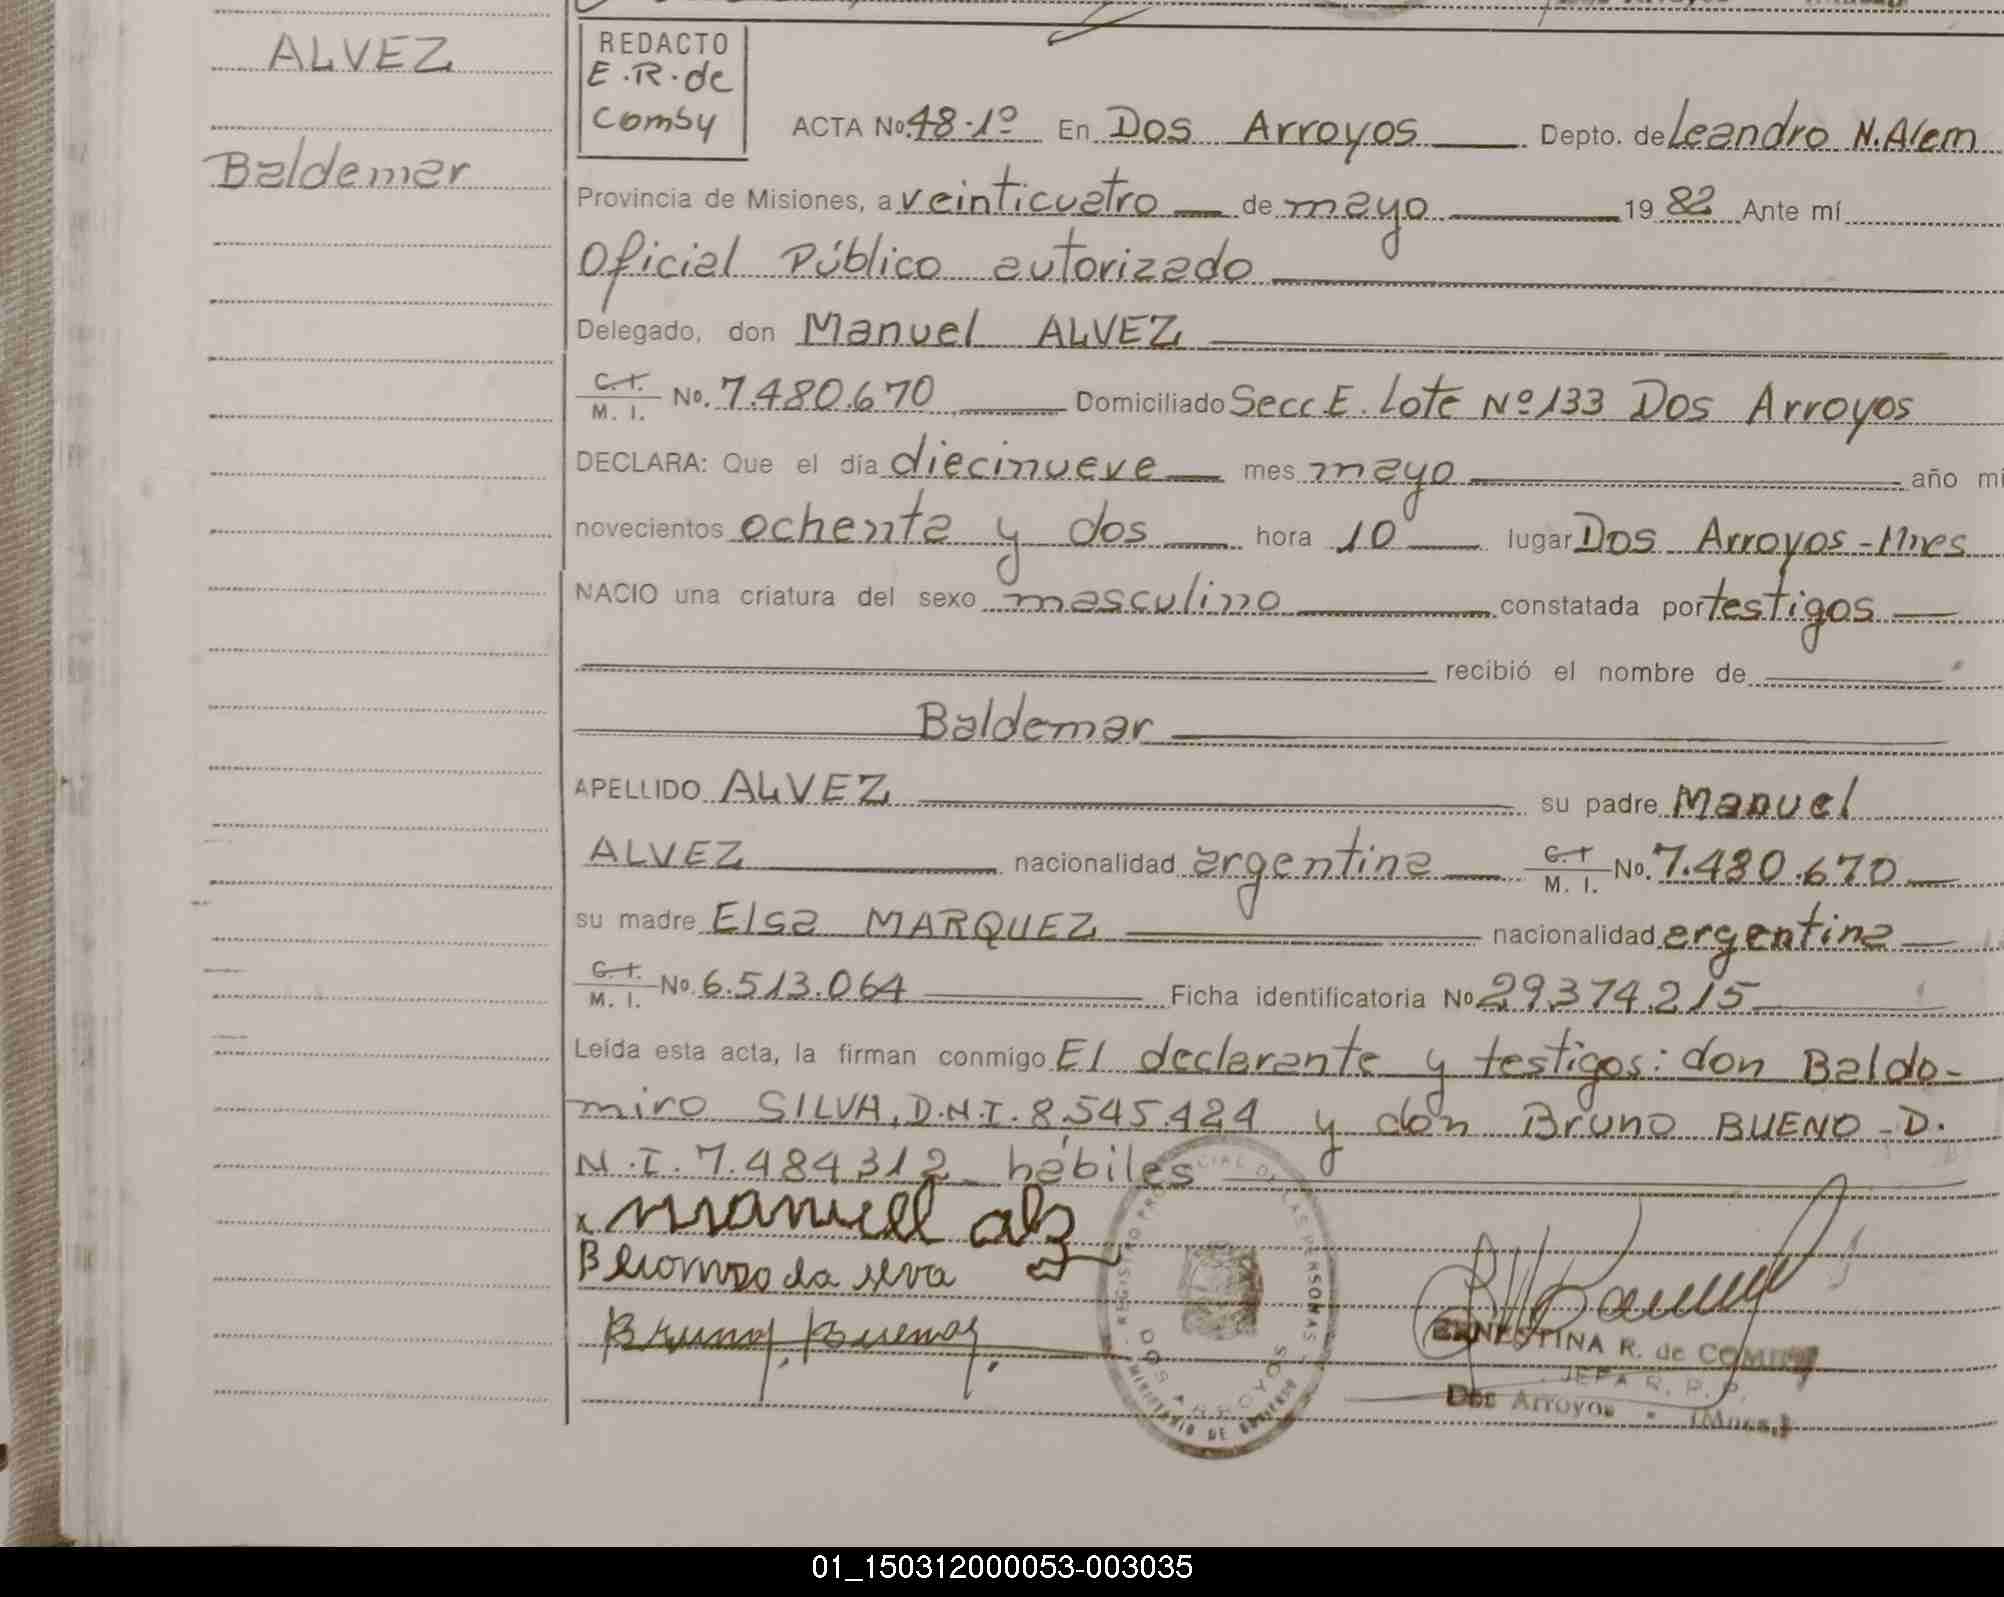 ALVEZ
Baldemar
REDACTO
E.R. de
Comby
ACTA No. 48-1º En Dos Arroyos Depto. de Leandro N. Alem
Provincia de Misiones, a veinticuatro de mayo 19 82 Ante mí
Oficial Público autorizado
Delegado, don Manuel ALVEZ
C.I. M. I. No. 7.480.670 Domiciliado Secc E. Lote Nº 133 Dos Arroyos
DECLARA: Que el día diecinueve mes mayo año mi
novecientos ochenta y dos hora 10 lugar Dos Arroyos - Mnes
NACIO una criatura del sexo masculino constatada por testigos
recibió el nombre de
Baldemar
APELLIDO ALVEZ su padre Manuel
ALVEZ nacionalidad argentina C.I. M. I. No. 7.480.670
su madre Elsa MARQUEZ nacionalidad argentina
C.I. M. I. No. 6.513.064 Ficha identificatoria No 29.374.215
Leída esta acta, la firman conmigo El declarante y testigos: don Baldo-
miro SILVA, D.N.I. 8.545.424 y don Bruno BUENO - D.
N.I. 7.484312 hábiles
x Manuell
da
Bruno, Bueno,
REGISTRO PROVINCIAL DE LAS PERSONAS
DOS ARROYOS
MINISTERIO DE GOBIERNO
ERNESTINA R. de COMBY
JEFA R. P. P.
Dos Arroyos - (Mnes.)
01_150312000053-003035